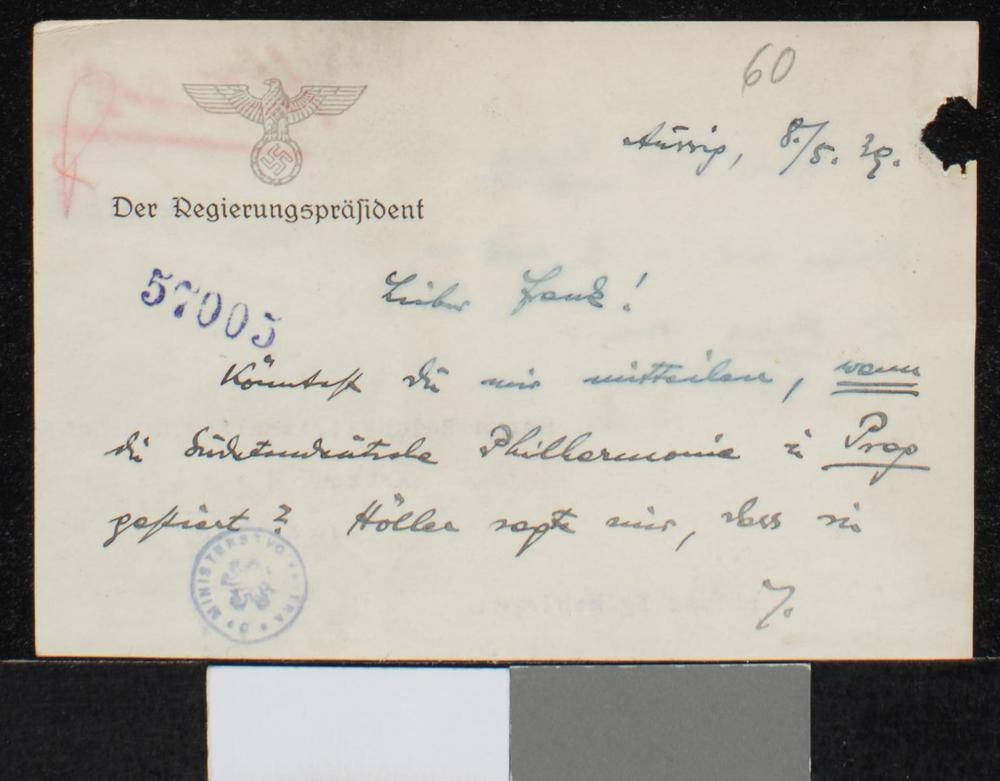 60
Aussig, 8./5. 39.
Der Regierungspräsident
57005
Lieber Frank!
Könntest Du mir mitteilen, wann
die Sudetendeutsche Philharmonie in Prag
gastiert? Höller sagte mir, dass sie
MINISTERSTVO VNITRA
7.